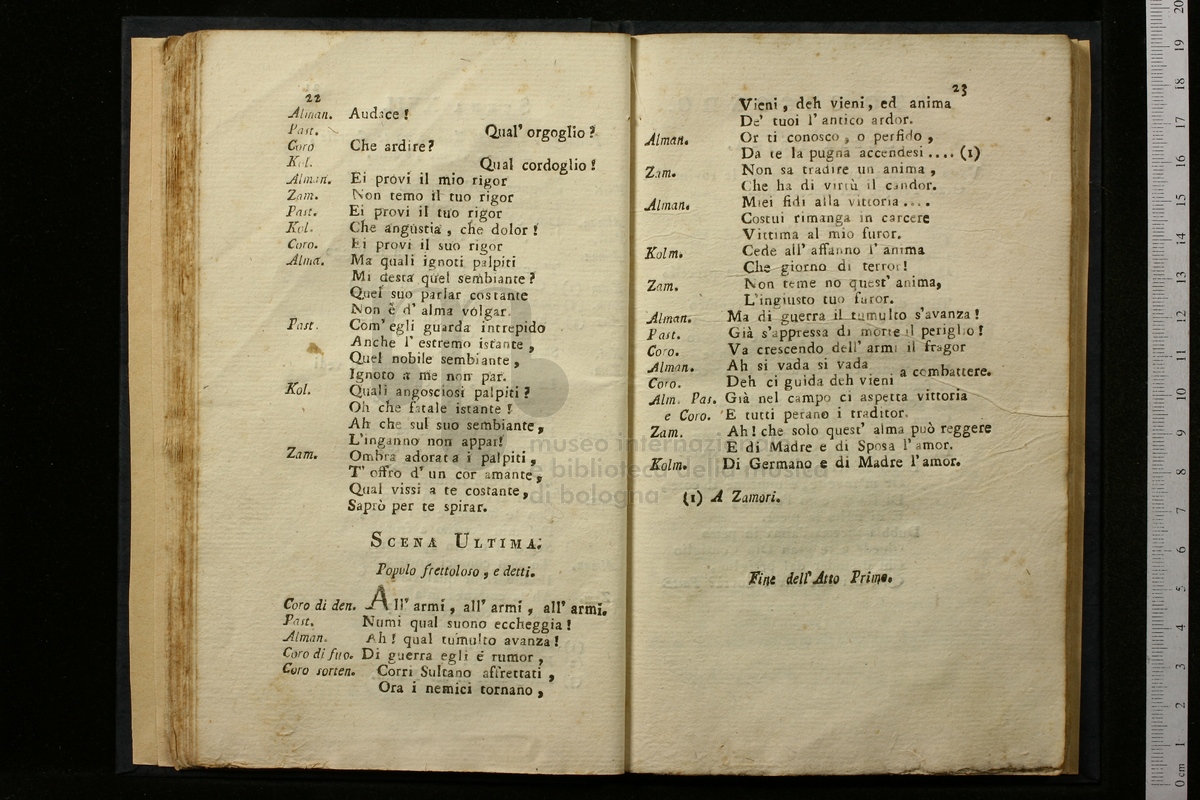 22
Alman. Audace!
Past. Qual' orgoglio?
Coro Che ardire?
Kol. Qual cordoglio!
Alman. Ei provi il mio rigor
Zam. Non temo il tuo rigor
Past. Ei provi il tuo rigor
Kol. Che angustia, che dolor!
Coro. Ei provi il suo rigor
Alma. Ma quali ignoti palpiti
Mi desta quel sembiante?
Quel suo parlar costante
Non è d' alma volgar.
Past. Com' egli guarda intrepido
Anche l' estremo istante,
Quel nobile sembiante,
Ignoto a me non par.
Kol. Quali angosciosi palpiti?
Oh che fatale istante!
Ah che sul suo sembiante,
L'inganno non appar!
Zam. Ombra adorata i palpiti,
T' offro d' un cor amante,
Qual vissi a te costante,
Saprò per te spirar.
SCENA ULTIMA.
Popolo frettoloso, e detti.
Coro di den. All' armi, all' armi, all' armi.
Past. Numi qual suono eccheggia!
Alman. Ah! qual tumulto avanza!
Coro di fuo. Di guerra egli è rumor,
Coro sorten. Corri Sultano affrettati,
Ora i nemici tornano,
23
Vieni, deh vieni, ed anima
De' tuoi l' antico ardor.
Alman. Or ti conosco, o perfido,
Da te la pugna accendesi .... (1)
Zam. Non sa tradire un anima,
Che ha di virtù il candor.
Alman. Miei fidi alla vittoria ....
Costui rimanga in carcere
Vittima al mio furor.
Kolm. Cede all' affanno l' anima
Che giorno di terror!
Zam. Non teme no quest' anima,
L'ingiusto tuo furor.
Alman. Ma di guerra il tumulto s'avanza!
Past. Già s'appressa di morte il periglio!
Coro. Va crescendo dell' armi il fragor
Alman. Ah si vada si vada
a combattere.
Coro. Deh ci guida deh vieni
Alm. Pas. Già nel campo ci aspetta vittoria
e Coro. E tutti perano i traditor.
Zam. Ah! che solo quest' alma può reggere
E di Madre e di Sposa l'amor.
Kolm. Di Germano e di Madre l'amor.
(1) A Zamori.
Fine dell' Atto Primo.
museo internazionale
e biblioteca della musica
di bologna
20
19
18
17
16
15
14
13
12
11
10
9
8
7
6
5
4
3
2
1
0 cm